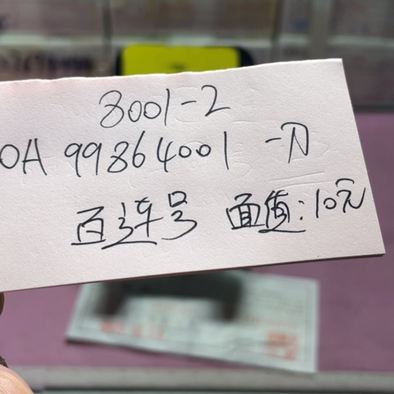 8001-2
0A 99864001
百连号 面值:10元